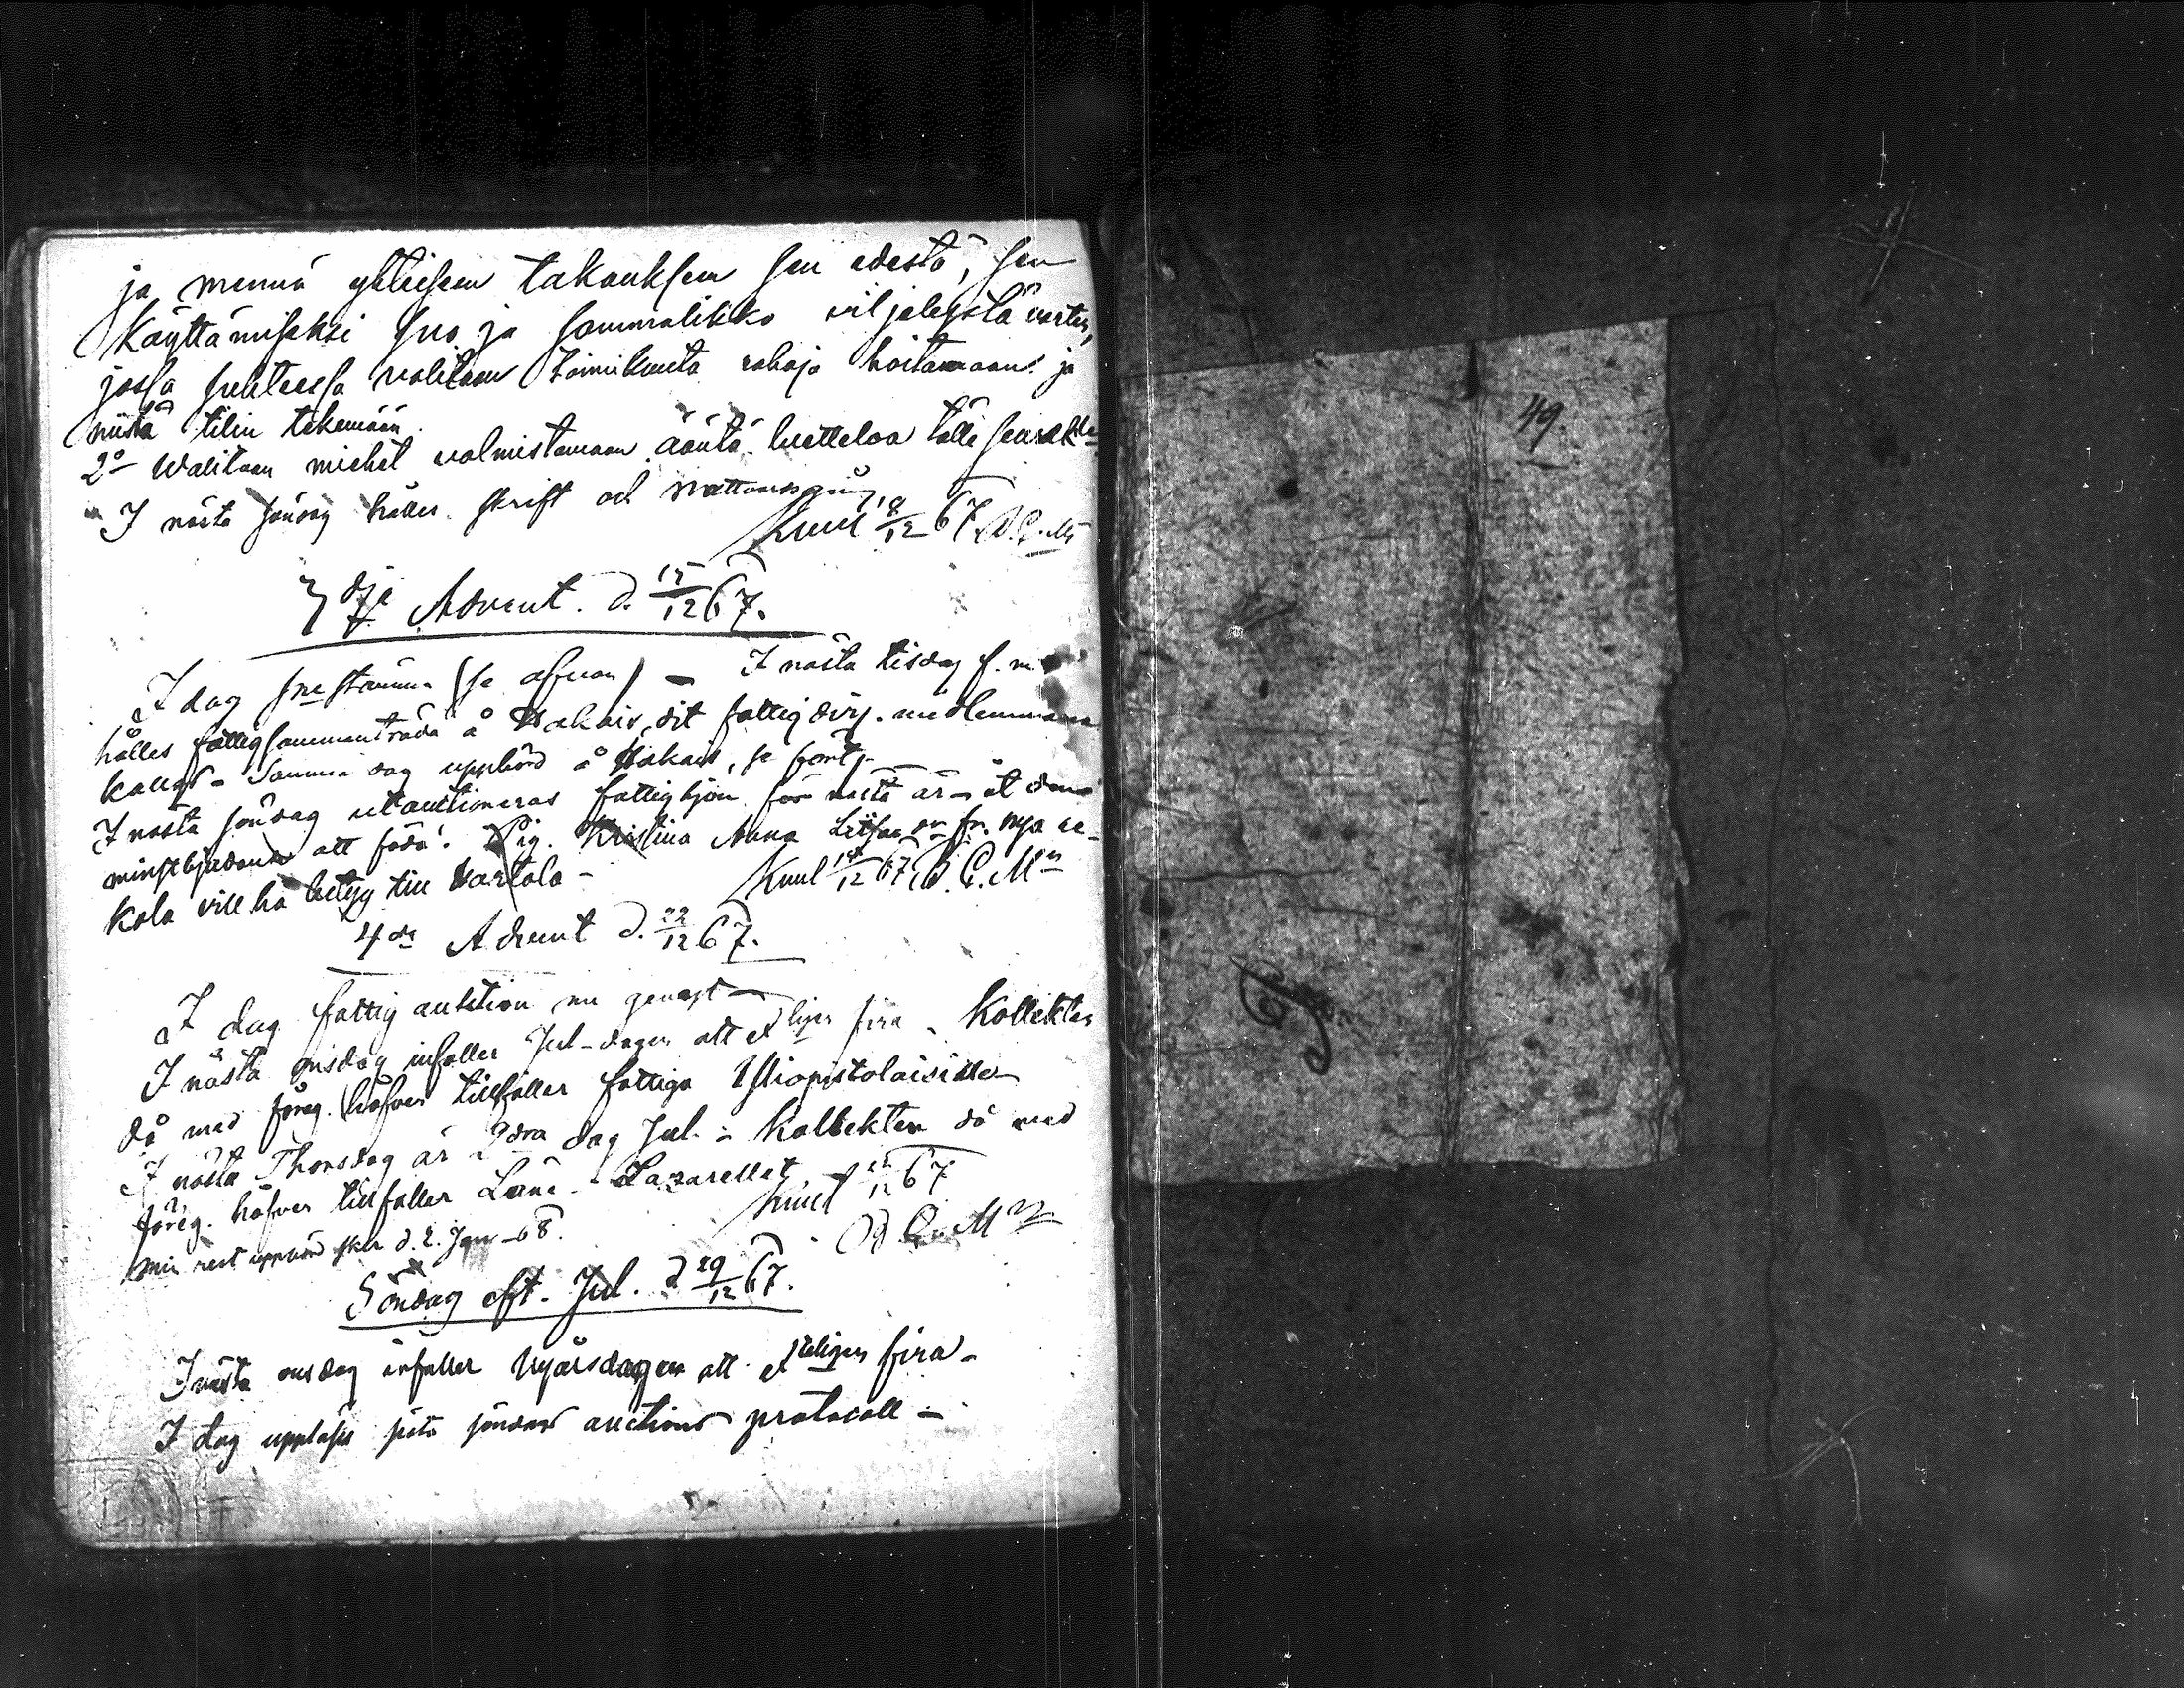 ja mennä yhteiseen takaukseen sen edestä, sen
käyttämiseksi suo ja sammalikko viljelystä varten,
jossa suhteessa valitaan toimikunta rahoja hoitamaan ja
niistä tilin tekemään.
2o Walitaan miehet valmistamaan ääntö luetteloa tälle seurak
I nästa söndag hålles skrift och nattvardsgång
Kunl 8/12 67
3dje Advent. d. 15/12 67.
I dag sne stämma (se ofvan) – I nästa tisdag f. m.
hålles fattigsammanträde å dit fattig dirj. medlemmarna
kallas – Samma dag uppbörd å
I nästa söndag utauctioneras fattighjon för nästa år – åt den
minstbjudande att föda. Pig. Kristina Anna fr. nya
kala vill ha betyg till Vartola –
Kunl 15/12 67 B. G. Mn
4de Advent d. 22/12 67.
I dag fattig auktion nu genast –
I nästa onsdag infaller Jul-dagen att ligen fira. Kollekten
då med föreg. håfven tillfaller fattiga
I nästa Thorsdag är 2dra dag Jul. – Kollekten då med
föreg. håfven tillfaller Läns-Lazarettet
Kunl 22/12 67
min rest uppbörd sker d. 2. Janu – 68.
B. G. Mn
Söndag eft. Jul. d. 29/12 67.
I nästa onsdag infaller Nyårsdagen att fira –
I dag uppläses sista söndags auctions protocoll –
49.